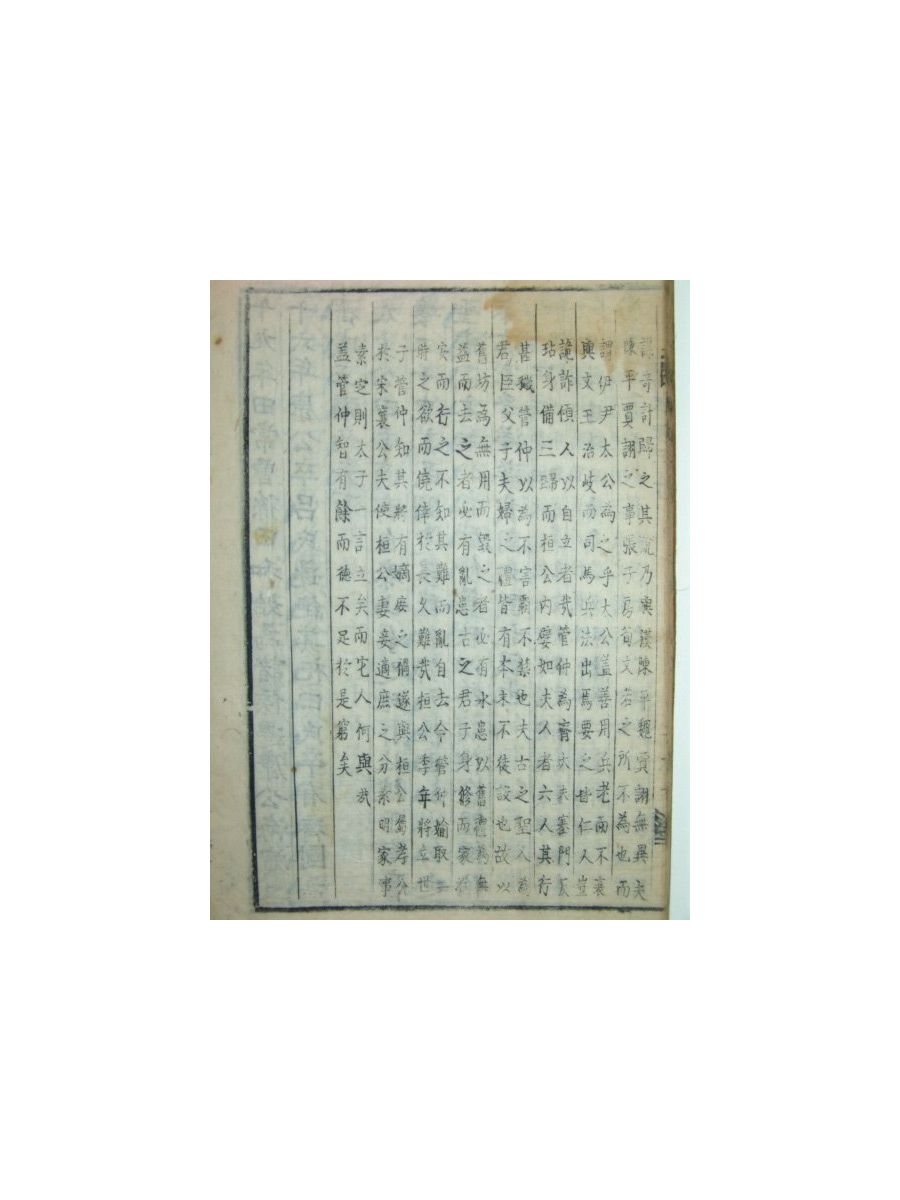 謀奇計歸之其說乃與漢陳平魏賈詡無異夫
陳平賈詡之事張子房荀文若之所不為也而
謂伊尹太公為之乎太公盖善用兵老而不衰
與文王治岐而司馬兵法出焉要之皆仁人豈
詭詐傾人以自立者哉管仲為齊大夫塞門反
坫身備三歸而桓公內嬖如夫人者六人其行
甚穢管仲以為不害霸不禁也夫古之聖人為
君臣父子夫婦之禮皆有本末不徒設也故以
舊坊為無用而毀之者必有水患以舊禮為無
益而去之者必有亂患古之君子身修而家治
安而行之不知其難而亂自去今管仲媮取一
時之欲而僥倖於長久難哉桓公季年將立世
子管仲知其將有嫡庶之禍遂與桓公屬孝公
於宋襄公夫使桓公妻妾適庶之分素明家事
素定則太子一言立矣而宅人何與哉
盖管仲智有餘而德不足於是窮矣